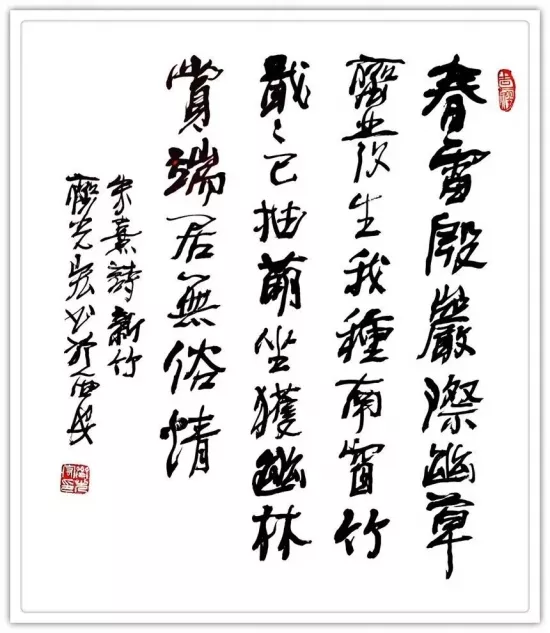 春雷殷巖際幽草
齊發生我種南窗竹
戢〻已抽萌坐獲幽林
賞端居無俗情
朱熹詩新竹
光宏书於西